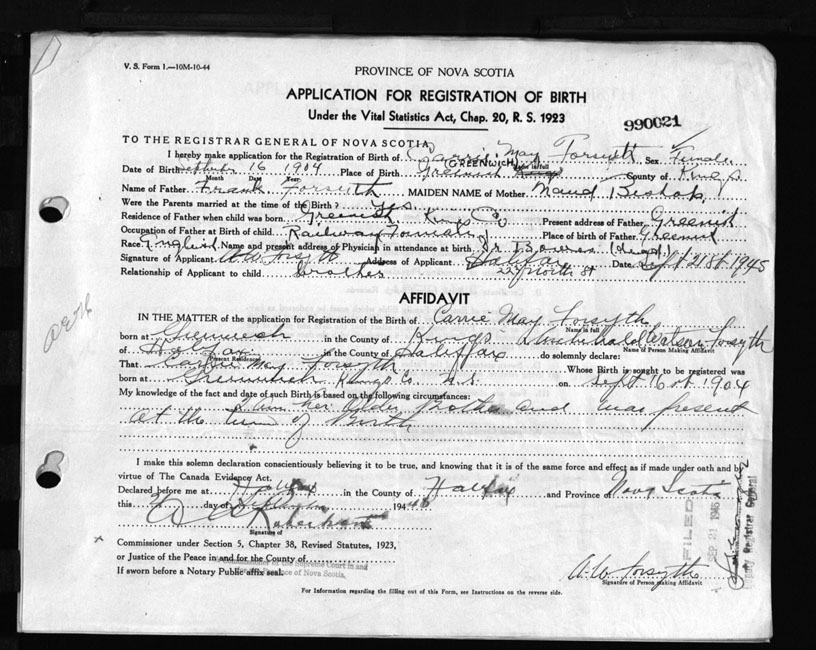 V. S. Form 1.—10M-10-44
PROVINCE OF NOVA SCOTIA
APPLICATION FOR REGISTRATION OF BIRTH
Under the Vital Statistics Act, Chap. 20, R. S. 1923
990021
TO THE REGISTRAR GENERAL OF NOVA SCOTIA
I hereby make application for the Registration of Birth of Carrie May Forsyth Sex Female
(GREENWICH) Name in full
Date of Birth 16 1904 Place of Birth Greenwich County of Kings
Month Date Year
Name of Father Frank Forsyth MAIDEN NAME of Mother Maud Bishop
Were the Parents married at the time of the Birth? Yes
Residence of Father when child was born Greenwich Kings Co Present address of Father Greenwich
Occupation of Father at Birth of child Railway Foreman Place of birth of Father Greenwich
Race English Name and present address of Physician in attendance at birth Dr. (dead)
Signature of Applicant A W Forsyth Address of Applicant Halifax Date Sept 21st 1945
Relationship of Applicant to child brother North St
AFFIDAVIT
IN THE MATTER of the application for Registration of the Birth of Carrie May Forsyth
Name in full
born at Greenwich in the County of Kings Archibald Watson Forsyth
Name of Person Making Affidavit
of Halifax in the County of Halifax do solemnly declare:
Present Residence
That Carrie May Forsyth Whose Birth is sought to be registered was
born at Greenwich Kings Co. N.S. on Sept 16th 1904
My knowledge of the fact and date of such Birth is based on the following circumstances:
I am her older Brother and was present
at the time of Birth
I make this solemn declaration conscientiously believing it to be true, and knowing that it is of the same force and effect as if made under oath and by
virtue of The Canada Evidence Act.
Declared before me at Halifax in the County of Halifax and Province of Nova Scotia
this day of 1945
Signature of
Commissioner under Section 5, Chapter 38, Revised Statutes, 1923,
or Justice of the Peace in and for the County of
A Commissioner of the Supreme Court in and
for the Province of Nova Scotia,
If sworn before a Notary Public affix seal.
A. W. Forsyth
Signature of Person Making Affidavit
FILED
SEP 21 1945
Deputy Registrar General
For Information regarding the filling out of this Form, see Instructions on the reverse side.